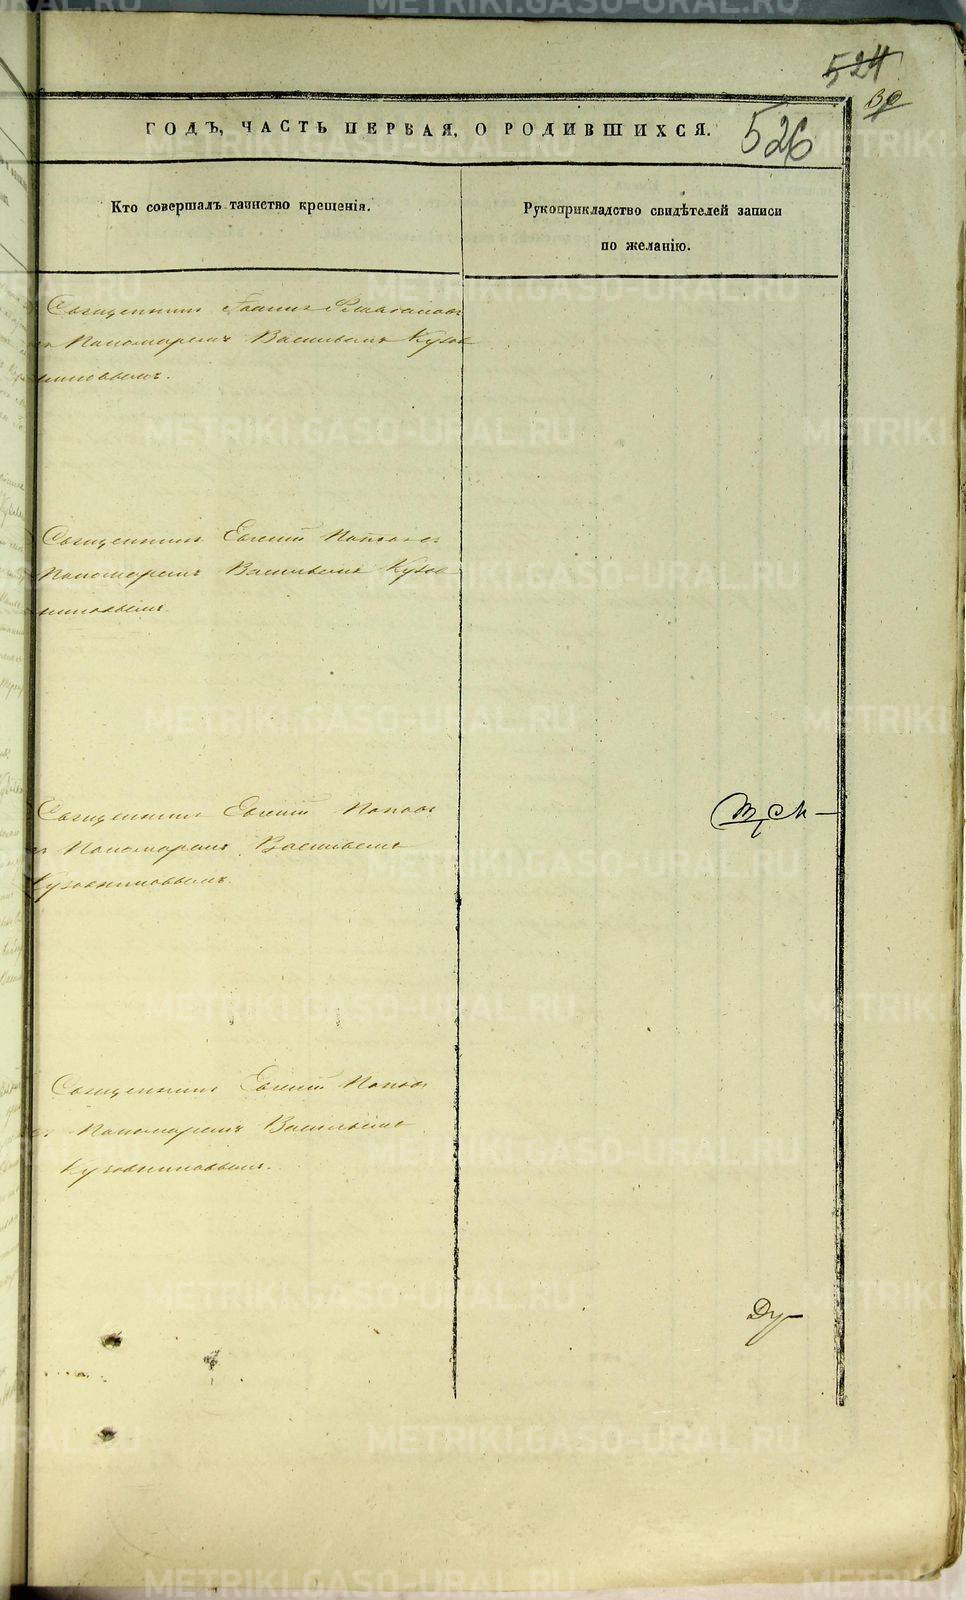 524
526
ГОДЪ, ЧАСТЬ ПЕРВАЯ, О РОДИВШИХСЯ.
Кто совершалъ таинство крещенія.
Рукоприкладство свидѣтелей записи
по желанію.
Священникъ Іоаннъ
съ Пономаремъ Васильемъ Кузов
никовымъ.
Священникъ Евгеній Поповъ съ
Пономаремъ Васильемъ Кузов
никовымъ.
Священникъ Евгеній Поповъ
съ Пономаремъ Васильемъ
Кузовниковымъ.
Священникъ Евгеній Поповъ
съ Пономаремъ Васильемъ
Кузовниковымъ.
METRIKI.GASO-URAL.RU